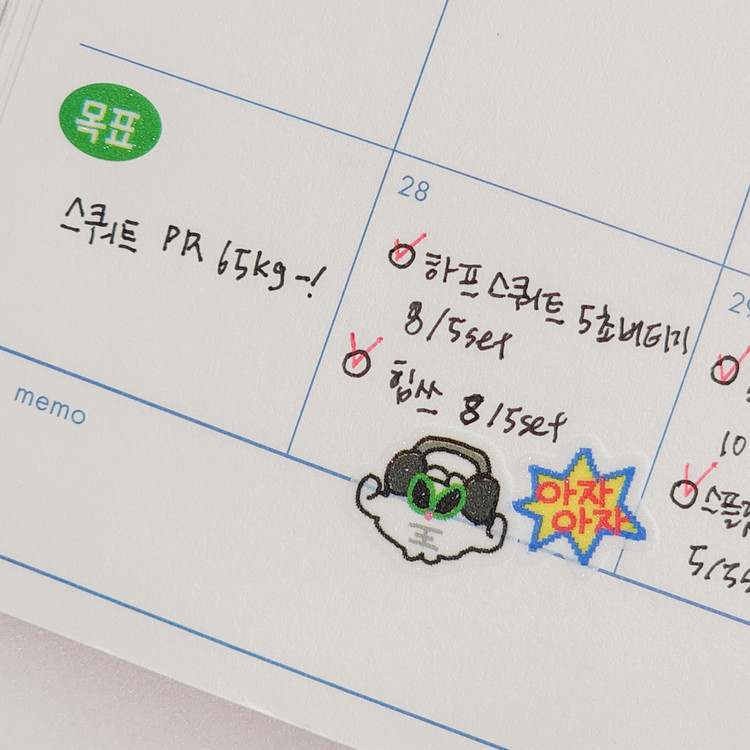 목표
스쿼트 PR 65kg-!
memo
28
하프스쿼트 5초버티기
8/5set
힙쓰 8/5set
아자
아자
29
10
5/3s